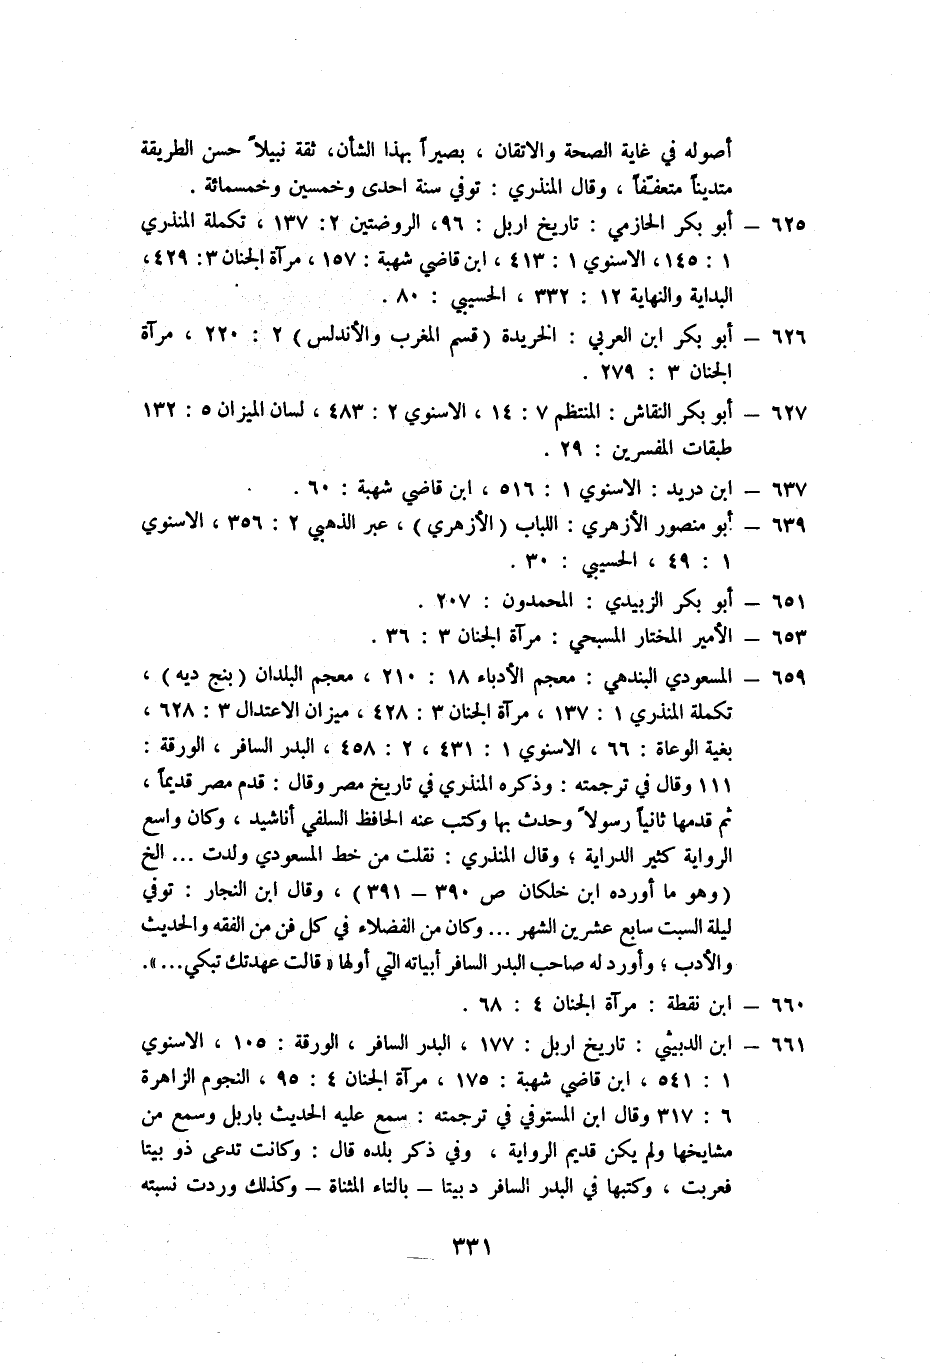 أصوله في غاية الصحة والاتقان ، بصيراً بهذا الشأن، ثقة نبيلاً حسن الطريقة
متديناً متعففّاً ، وقال المنذري : توفي سنة احدى وخمسين وخمسمائة .
٦٢٥ – أبو بكر الحازمي : تاريخ اربل : ٩٦، الروضتين ٢: ١٣٧ ، تكملة المنذري
١ : ١٤٥، الاسنوي ١ : ٤١٣ ، ابن قاضي شهبة : ١٥٧ ، مرآة الجنان ٣: ٤٢٩،
البداية والنهاية ١٢ : ٣٣٢ ، الحسيبي : ٨٠ .
٦٢٦ – أبو بكر ابن العربي : الخريدة (قسم المغرب والأندلس) ٢ : ٢٢٠ ، مرآة
الجنان ٣ : ٢٧٩ .
٦٢٧ – أبو بكر النقاش : المنتظم ٧ : ١٤ ، الاسنوي ٢ : ٤٨٣ ، لسان الميزان ٥ : ١٣٢
طبقات المفسرين : ٢٩ .
٦٣٧ – ابن دريد : الاسنوي ١ : ٥١٦ ، ابن قاضي شهبة : ٦٠ .
٦٣٩ – أبو منصور الأزهري : اللباب (الأزهري) ، عبر الذهبي ٢ : ٣٥٦ ، الاسنوي
١ : ٤٩ ، الحسيبي : ٣٠ .
٦٥١ – أبو بكر الزبيدي : المحمدون : ٢٠٧ .
٦٥٣ – الأمير المختار المسبحي : مرآة الجنان ٣ : ٣٦ .
٦٥٩ – المسعودي البندهي : معجم الأدباء ١٨ : ٢١٠ ، معجم البلدان (بنج ديه) ،
تكملة المنذري ١ : ١٣٧ ، مرآة الجنان ٣ : ٤٢٨ ، ميزان الاعتدال ٣ : ٦٢٨ ،
بغية الوعاة : ٦٦ ، الاسنوي ١ : ٤٣١ ، ٢ : ٤٥٨ ، البدر السافر ، الورقة :
١١١ وقال في ترجمته : وذكره المنذري في تاريخ مصر وقال : قدم مصر قديماً ،
ثم قدمها ثانياً رسولاً وحدث بها وكتب عنه الحافظ السلفي أناشيد ، وكان واسع
الرواية كثير الدراية ؛ وقال المنذري : نقلت من خط المسعودي ولدت ... الخ
(وهو ما أورده ابن خلكان ص ٣٩٠ – ٣٩١) ، وقال ابن النجار : توفي
ليلة السبت سابع عشرين الشهر ... وكان من الفضلاء في كل فن من الفقه والحديث
والأدب ؛ وأورد له صاحب البدر السافر أبياته التي أولها « قالت عهدتك تبكي...».
٦٦٠ – ابن نقطة : مرآة الجنان ٤ : ٦٨ .
٦٦١ – ابن الدبيثي : تاريخ اربل : ١٧٧ ، البدر السافر ، الورقة : ١٠٥ ، الاسنوي
١ : ٥٤١ ، ابن قاضي شهبة : ١٧٥ ، مرآة الجنان ٤ : ٩٥ ، النجوم الزاهرة
٦ : ٣١٧ وقال ابن المستوفي في ترجمته : سمع عليه الحديث باربل وسمع من
مشايخها ولم يكن قديم الرواية ، وفي ذكر بلده قال : وكانت تدعى ذو بيتا
فعربت ، وكتبها في البدر السافر دبيتا – بالتاء المثناة – وكذلك وردت نسبته
٣٣١